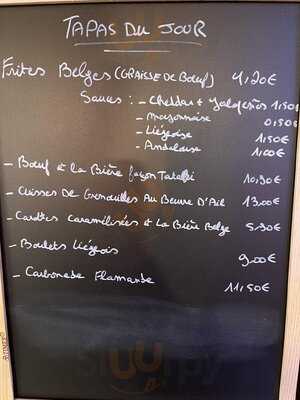 TAPAS DU JOUR
Frites Belges (GRAISSE DE BOEUF) 4,20€
Sauces : - Cheddar + Jalapeños 1,50€
- mayonnaise 0,50€
- Liégeoise 1,50€
- Andalouse 1,00€
- Boeuf à la Bière façon Tataki 10,90€
- Cuisses De Grenouilles Au Beurre D'Ail 13,00€
- Carottes Caramélisées à La Bière Belge 5,90€
- Boulets Liégeois 9,00€
- Carbonade Flamande 11,50€